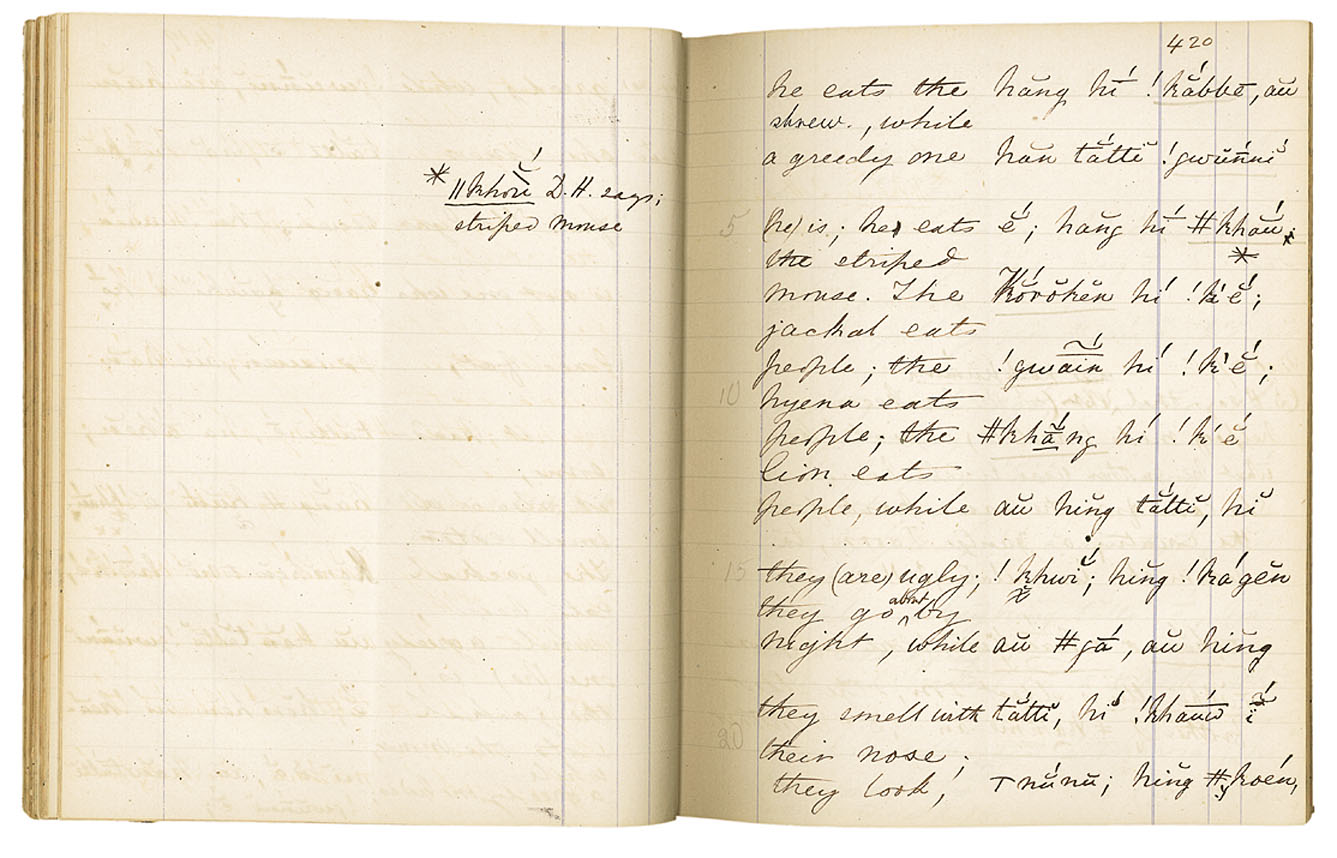 * ǁkhorĭ́ D.H. says;
striped mouse
420
he eats the hăng hī́ !kắbbĕ, aŭ
shrew., while
a greedy one hăn tắttĭ !gwŭ́nnĭ
5 (he) is; he eats ĕ́; hăng hī́ ǂkhaŭ́.
the striped *
mouse. The Kŏ́rŏkĕn hí !k'ĕ́;
jackal eats
people; the !gwain hí !k'ĕ́;
10 hyena eats
people; the ǂkhắng hí !k'ĕ́
lion eats
people, while aŭ hĭng tắttĭ, hĭ
15 they (are) ugly; !khwĭ́; hĭng !kágĕn
they go about by
night, while aŭ ǂgā́, aŭ hĭng
they smell with tắttĭ, hĭ !khaúw ĭ́
20 their nose;
they look, nŭ́nŭ; hĭng ǂkoén,